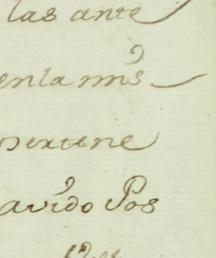 las ante
enla mṙs
pertene
avido Pos